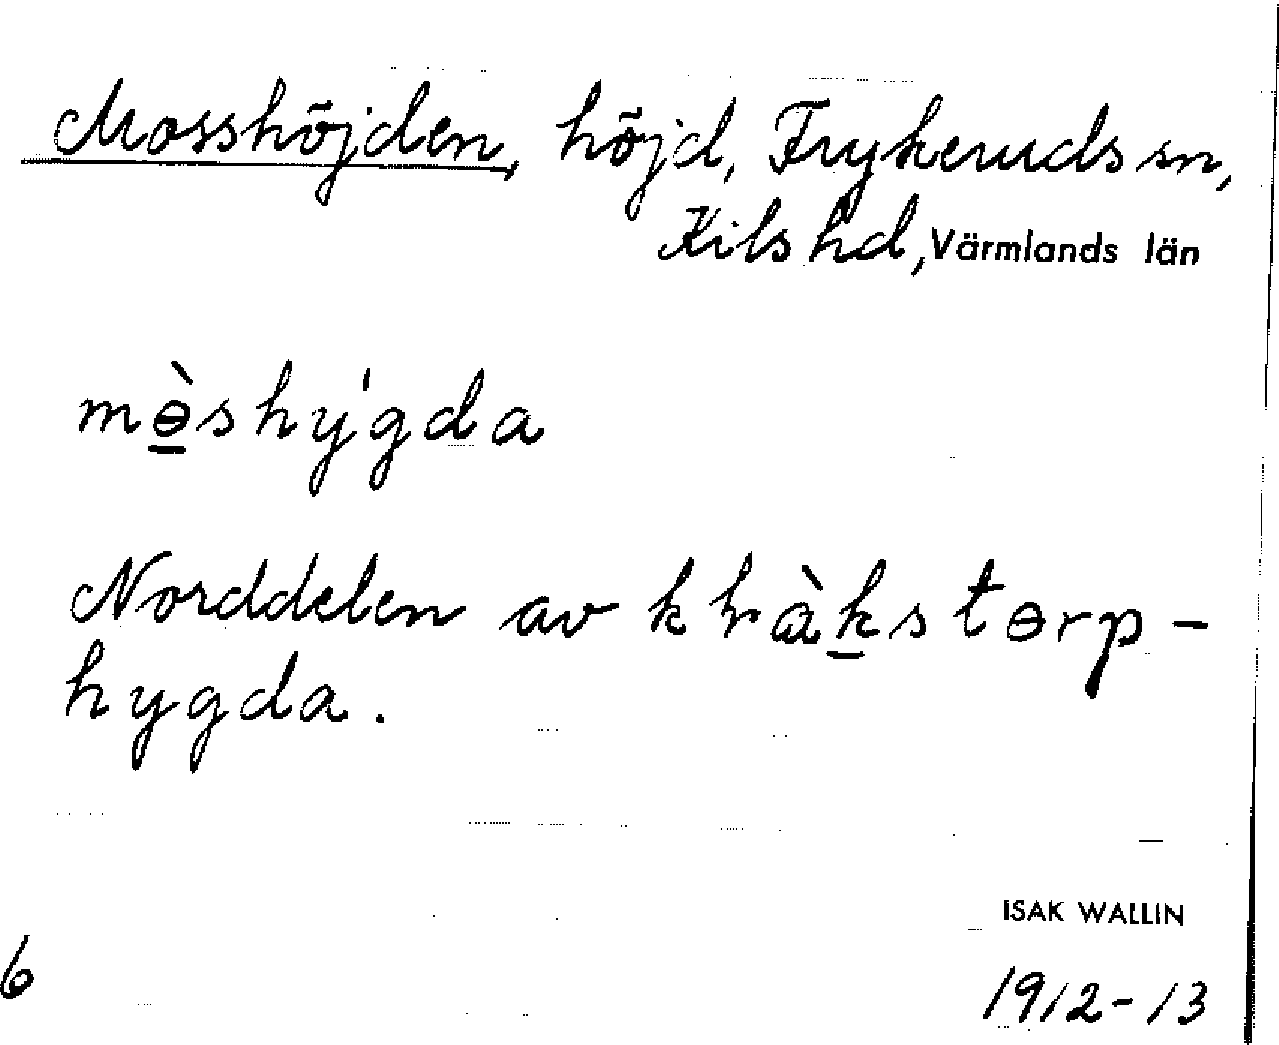 Mosshöjden, höjd, Frykeruds sn,
Kils hd, Värmlands län
mɵ̠̀shy̍gda
Norddelen av kràk̠stɵrp-
hygda.
ISAK WALLIN
6
1912-13